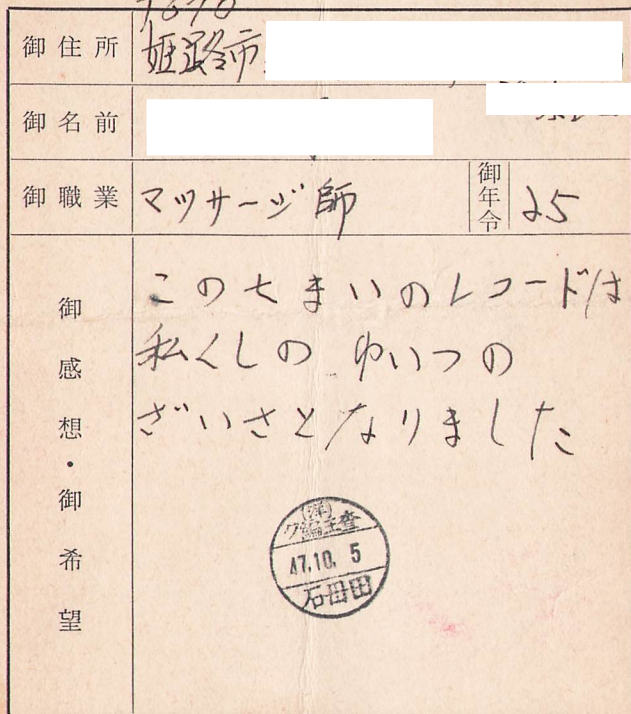 1670
御住所 姫路市
御名前
御職業 マッサージ師 御年令 25
御感想・御希望
この七まいのレコードは
私くしの ゆいつの
ざいさとなりました
47.10.5
石母田